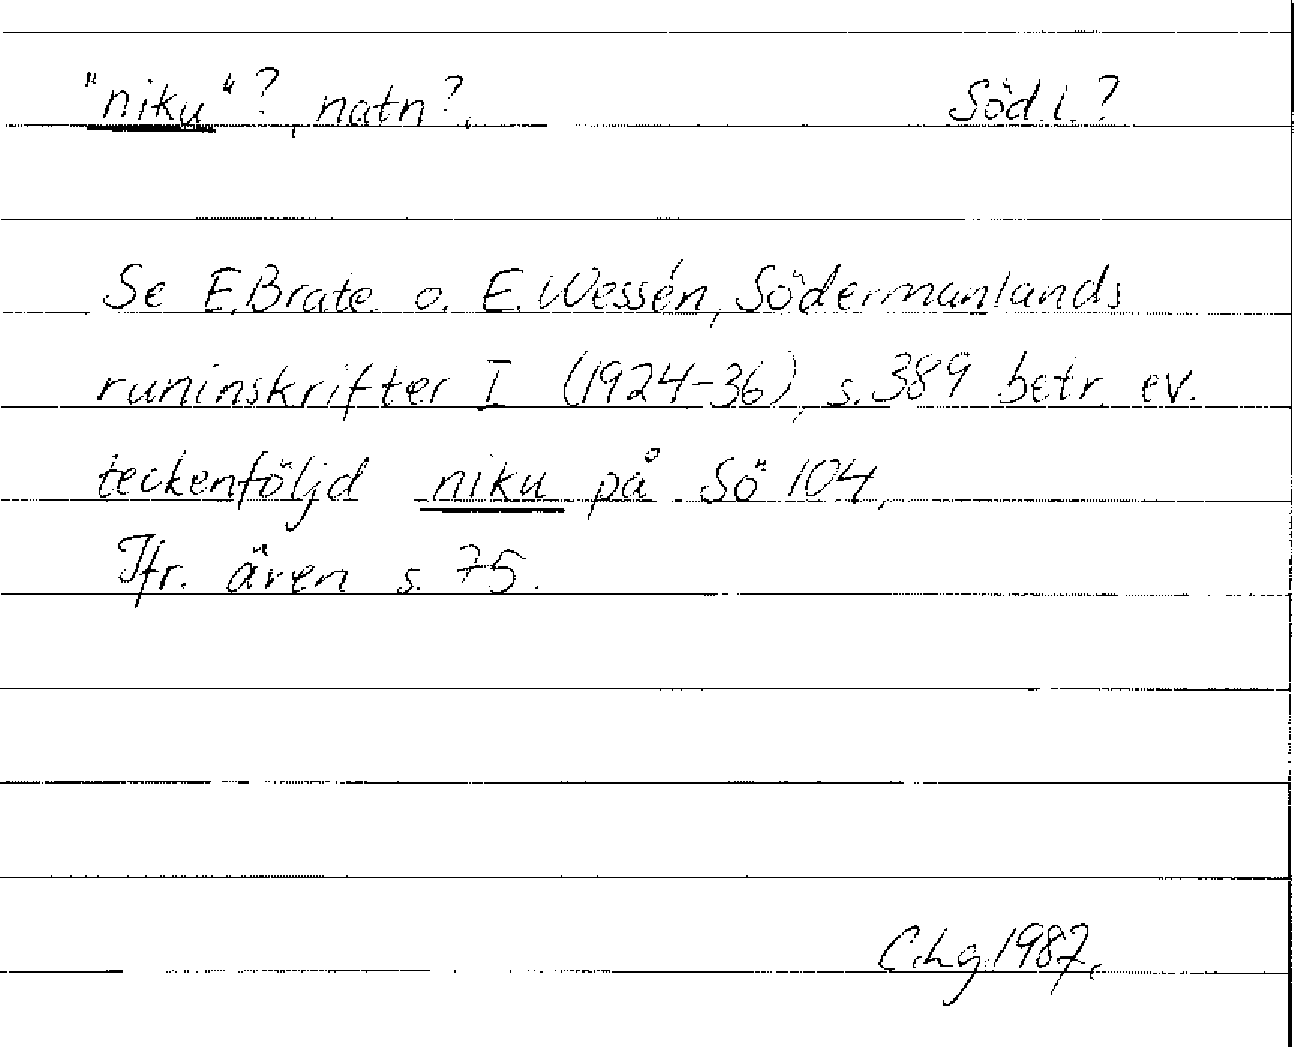 "niku"?, natn?, Södl.?
Se E.Brate o. E.Wessén, Södermanlands
runinskrifter I (1924-36), s.389 betr. ev.
teckenföljd niku på Sö 104.
Jfr. även s. 75.
C.hg.1987.